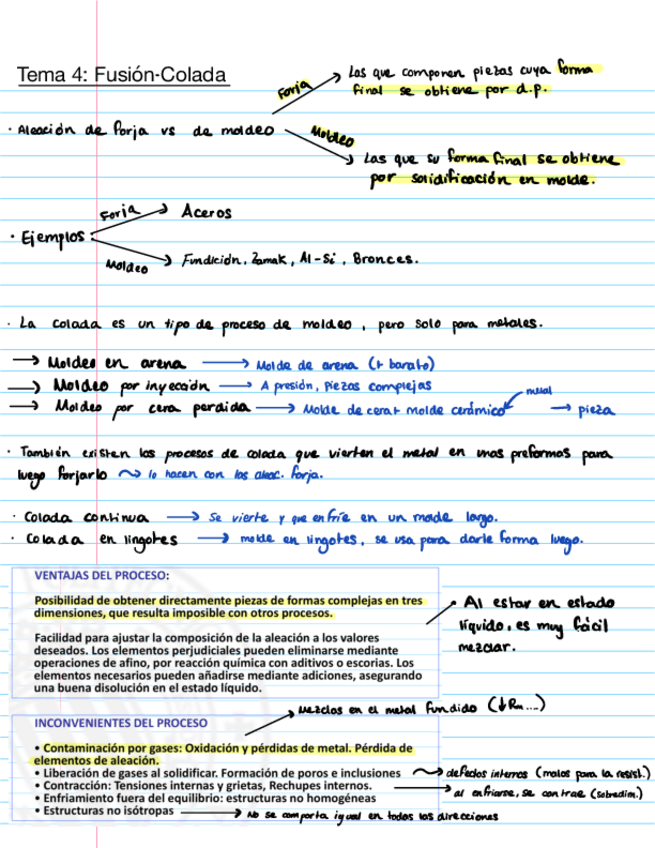 Tema 4: Fusión-Colada
Forja
Las que componen piezas cuya forma
final se obtiene por d.p.
· Aleación de forja vs de moldeo
Moldeo
Las que su forma final se obtiene
por solidificación en molde.
Forja → Aceros
· Ejemplos:
Moldeo → Fundición, Zamak, Al-Si, Bronces.
· La colada es un tipo de proceso de moldeo, pero solo para metales.
→ Moldeo en arena → Molde de arena (+ barato)
→ Moldeo por inyección → A presión, piezas complejas
metal
→ Moldeo por cera perdida → Molde de cera + molde cerámico → pieza
· También existen los procesos de colada que vierten el metal en unas preformas para
luego forjarlo ~> lo hacen con las aleac. forja.
· Colada continua → Se vierte y que enfríe en un molde largo.
· Colada en lingotes → molde en lingotes, se usa para darle forma luego.
VENTAJAS DEL PROCESO:
Posibilidad de obtener directamente piezas de formas complejas en tres
dimensiones, que resulta imposible con otros procesos.
Al estar en estado
líquido, es muy fácil
mezclar.
Facilidad para ajustar la composición de la aleación a los valores
deseados. Los elementos perjudiciales pueden eliminarse mediante
operaciones de afino, por reacción química con aditivos o escorias. Los
elementos necesarios pueden añadirse mediante adiciones, asegurando
una buena disolución en el estado líquido.
Mezclas en el metal fundido (↓Rm...)
INCONVENIENTES DEL PROCESO
• Contaminación por gases: Oxidación y pérdidas de metal. Pérdida de
elementos de aleación.
• Liberación de gases al solidificar. Formación de poros e inclusiones ~> defectos internos (malos para la resist.)
• Contracción: Tensiones internas y grietas, Rechupes internos. → al enfriarse, se contrae (sobredim.)
• Enfriamiento fuera del equilibrio: estructuras no homogéneas
• Estructuras no isótropas → No se comporta igual en todas las direcciones